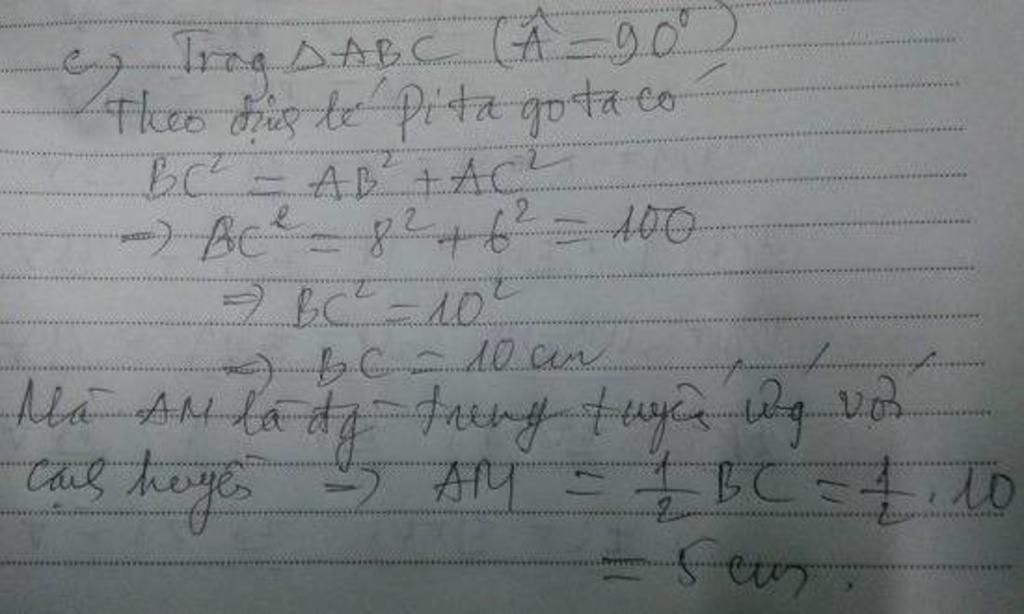 c) Trog △ABC (Â = 90°)
Theo định lí Pi ta go ta có
BC² = AB² + AC²
=> BC² = 8² + 6² = 100
=> BC² = 10²
=> BC = 10 cm
Mà AM là đg trung tuyến ứng với
cạnh huyền => AM = 1/2 BC = 1/2 . 10
= 5 cm.